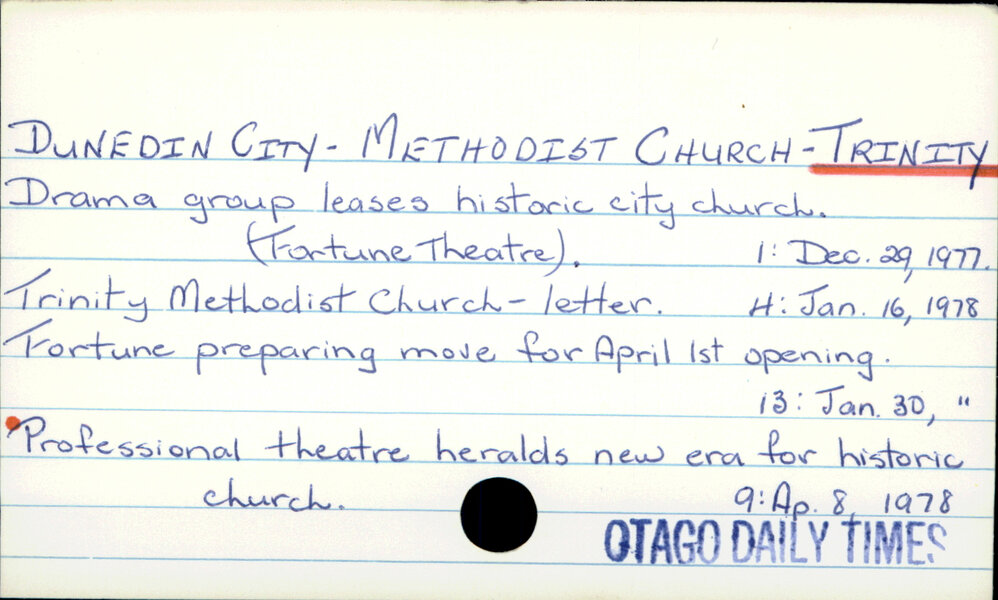 DUNEDIN CITY - METHODIST CHURCH - TRINITY
Drama group leases historic city church.
(Fortune Theatre). 1: Dec. 29, 1977.
Trinity Methodist Church - letter. 4: Jan. 16, 1978
Fortune preparing move for April 1st opening.
13: Jan. 30, "
Professional theatre heralds new era for historic
church. 9: Ap. 8, 1978
OTAGO DAILY TIMES